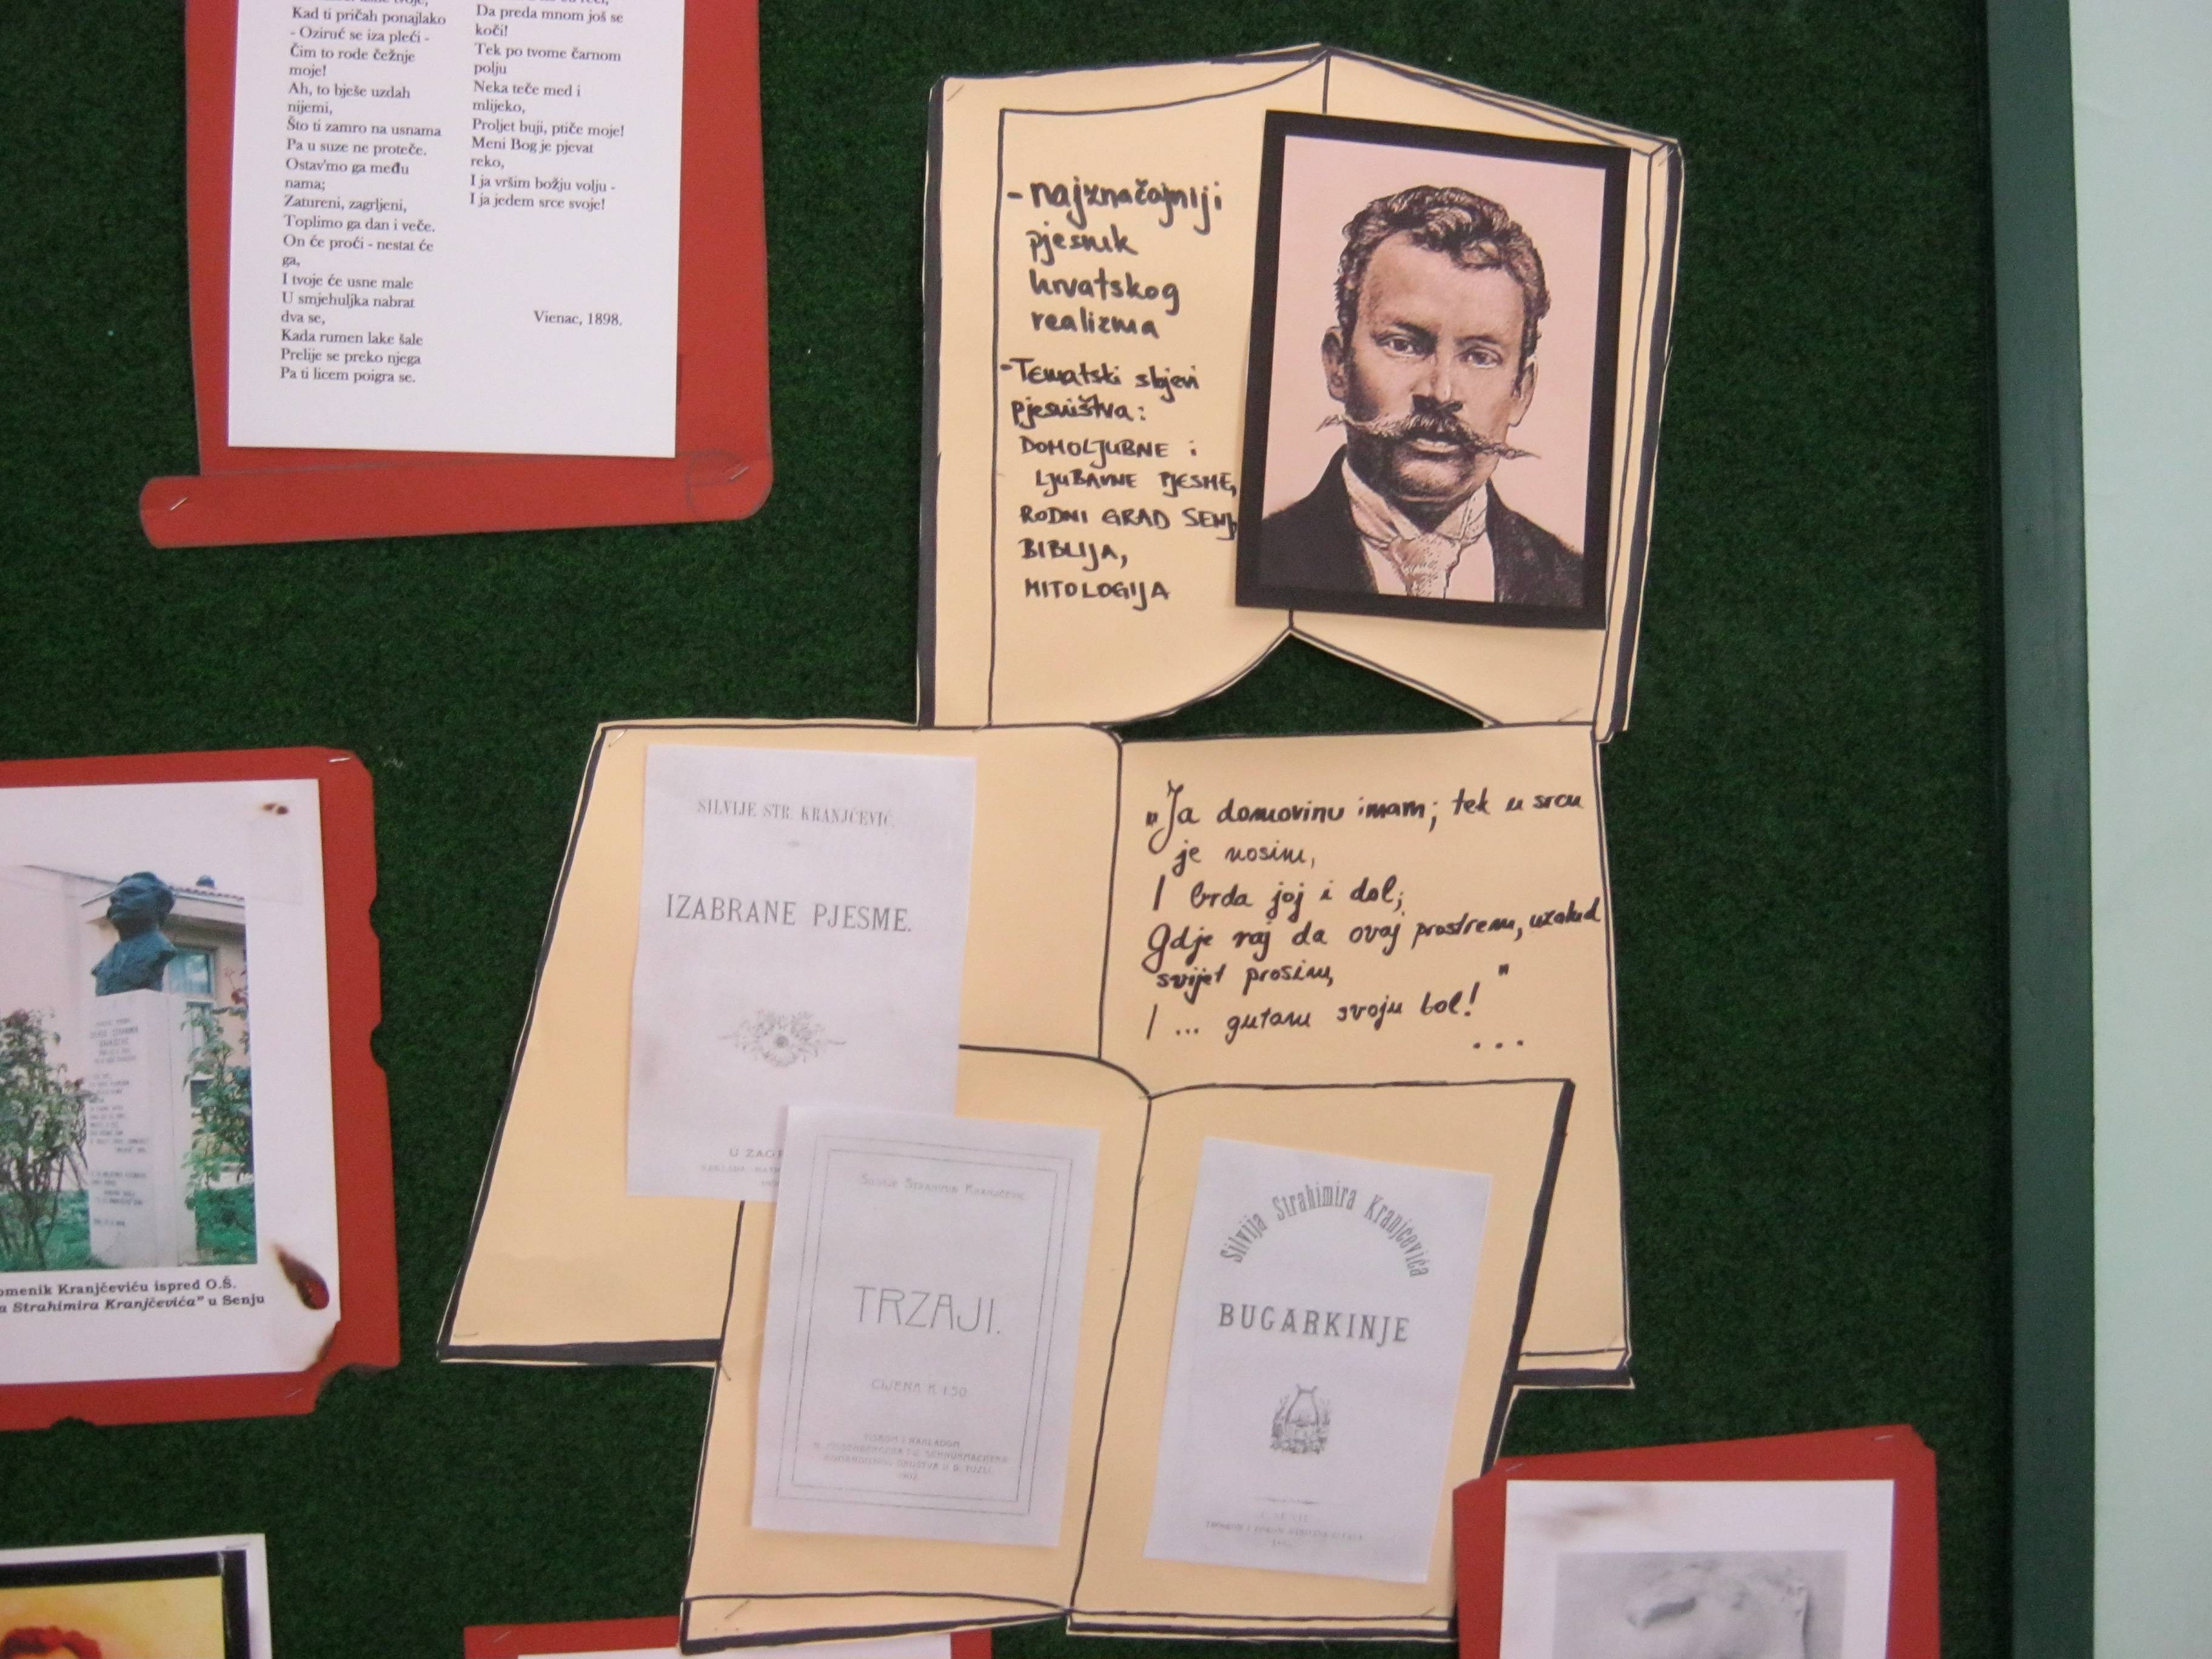 Kad ti pričah ponajlako
- Oziruć se iza pleći -
Čim to rode čežnje
moje!
Ah, to bješe uzdah
nijemi,
Što ti zamro na usnama
Pa u suze ne proteče.
Ostav'mo ga među
nama;
Zatureni, zagrljeni,
Toplimo ga dan i veče.
On će proći - nestat će
ga,
I tvoje će usne male
U smjehuljka nabrat
dva se,
Kada rumen lake šale
Prelije se preko njega
Pa ti licem poigra se.
Da preda mnom još se
koči!
Tek po tvome čarnom
polju
Neka teče med i
mlijeko,
Proljet buji, ptiče moje!
Meni Bog je pjevat
reko,
I ja vršim božju volju -
I ja jedem srce svoje!
Vienac, 1898.
- najznačajniji
pjesnik
hrvatskog
realizma
- Tematski slojevi
pjesništva:
DOMOLJUBNE i
LJUBAVNE PJESME,
RODNI GRAD SENJ,
BIBLIJA,
MITOLOGIJA
SILVIJE STR. KRANJČEVIĆ.
IZABRANE PJESME.
U ZAG
"Ja domovinu imam; tek u srcu
je nosim,
I brda joj i dol;
Gdje raj da ovaj prostrem, uzalud
svijet prosim,
I ... gutam svoju bol!"
...
omenik Kranjčeviću ispred O.Š.
a Strahimira Kranjčevića" u Senju
Silvije Strahimir Kranjčević
TRZAJI.
CIJENA K 1·50
TISKOM I NAKLADOM
1902
Silvija Strahimira Kranjčevića
BUGARKINJE